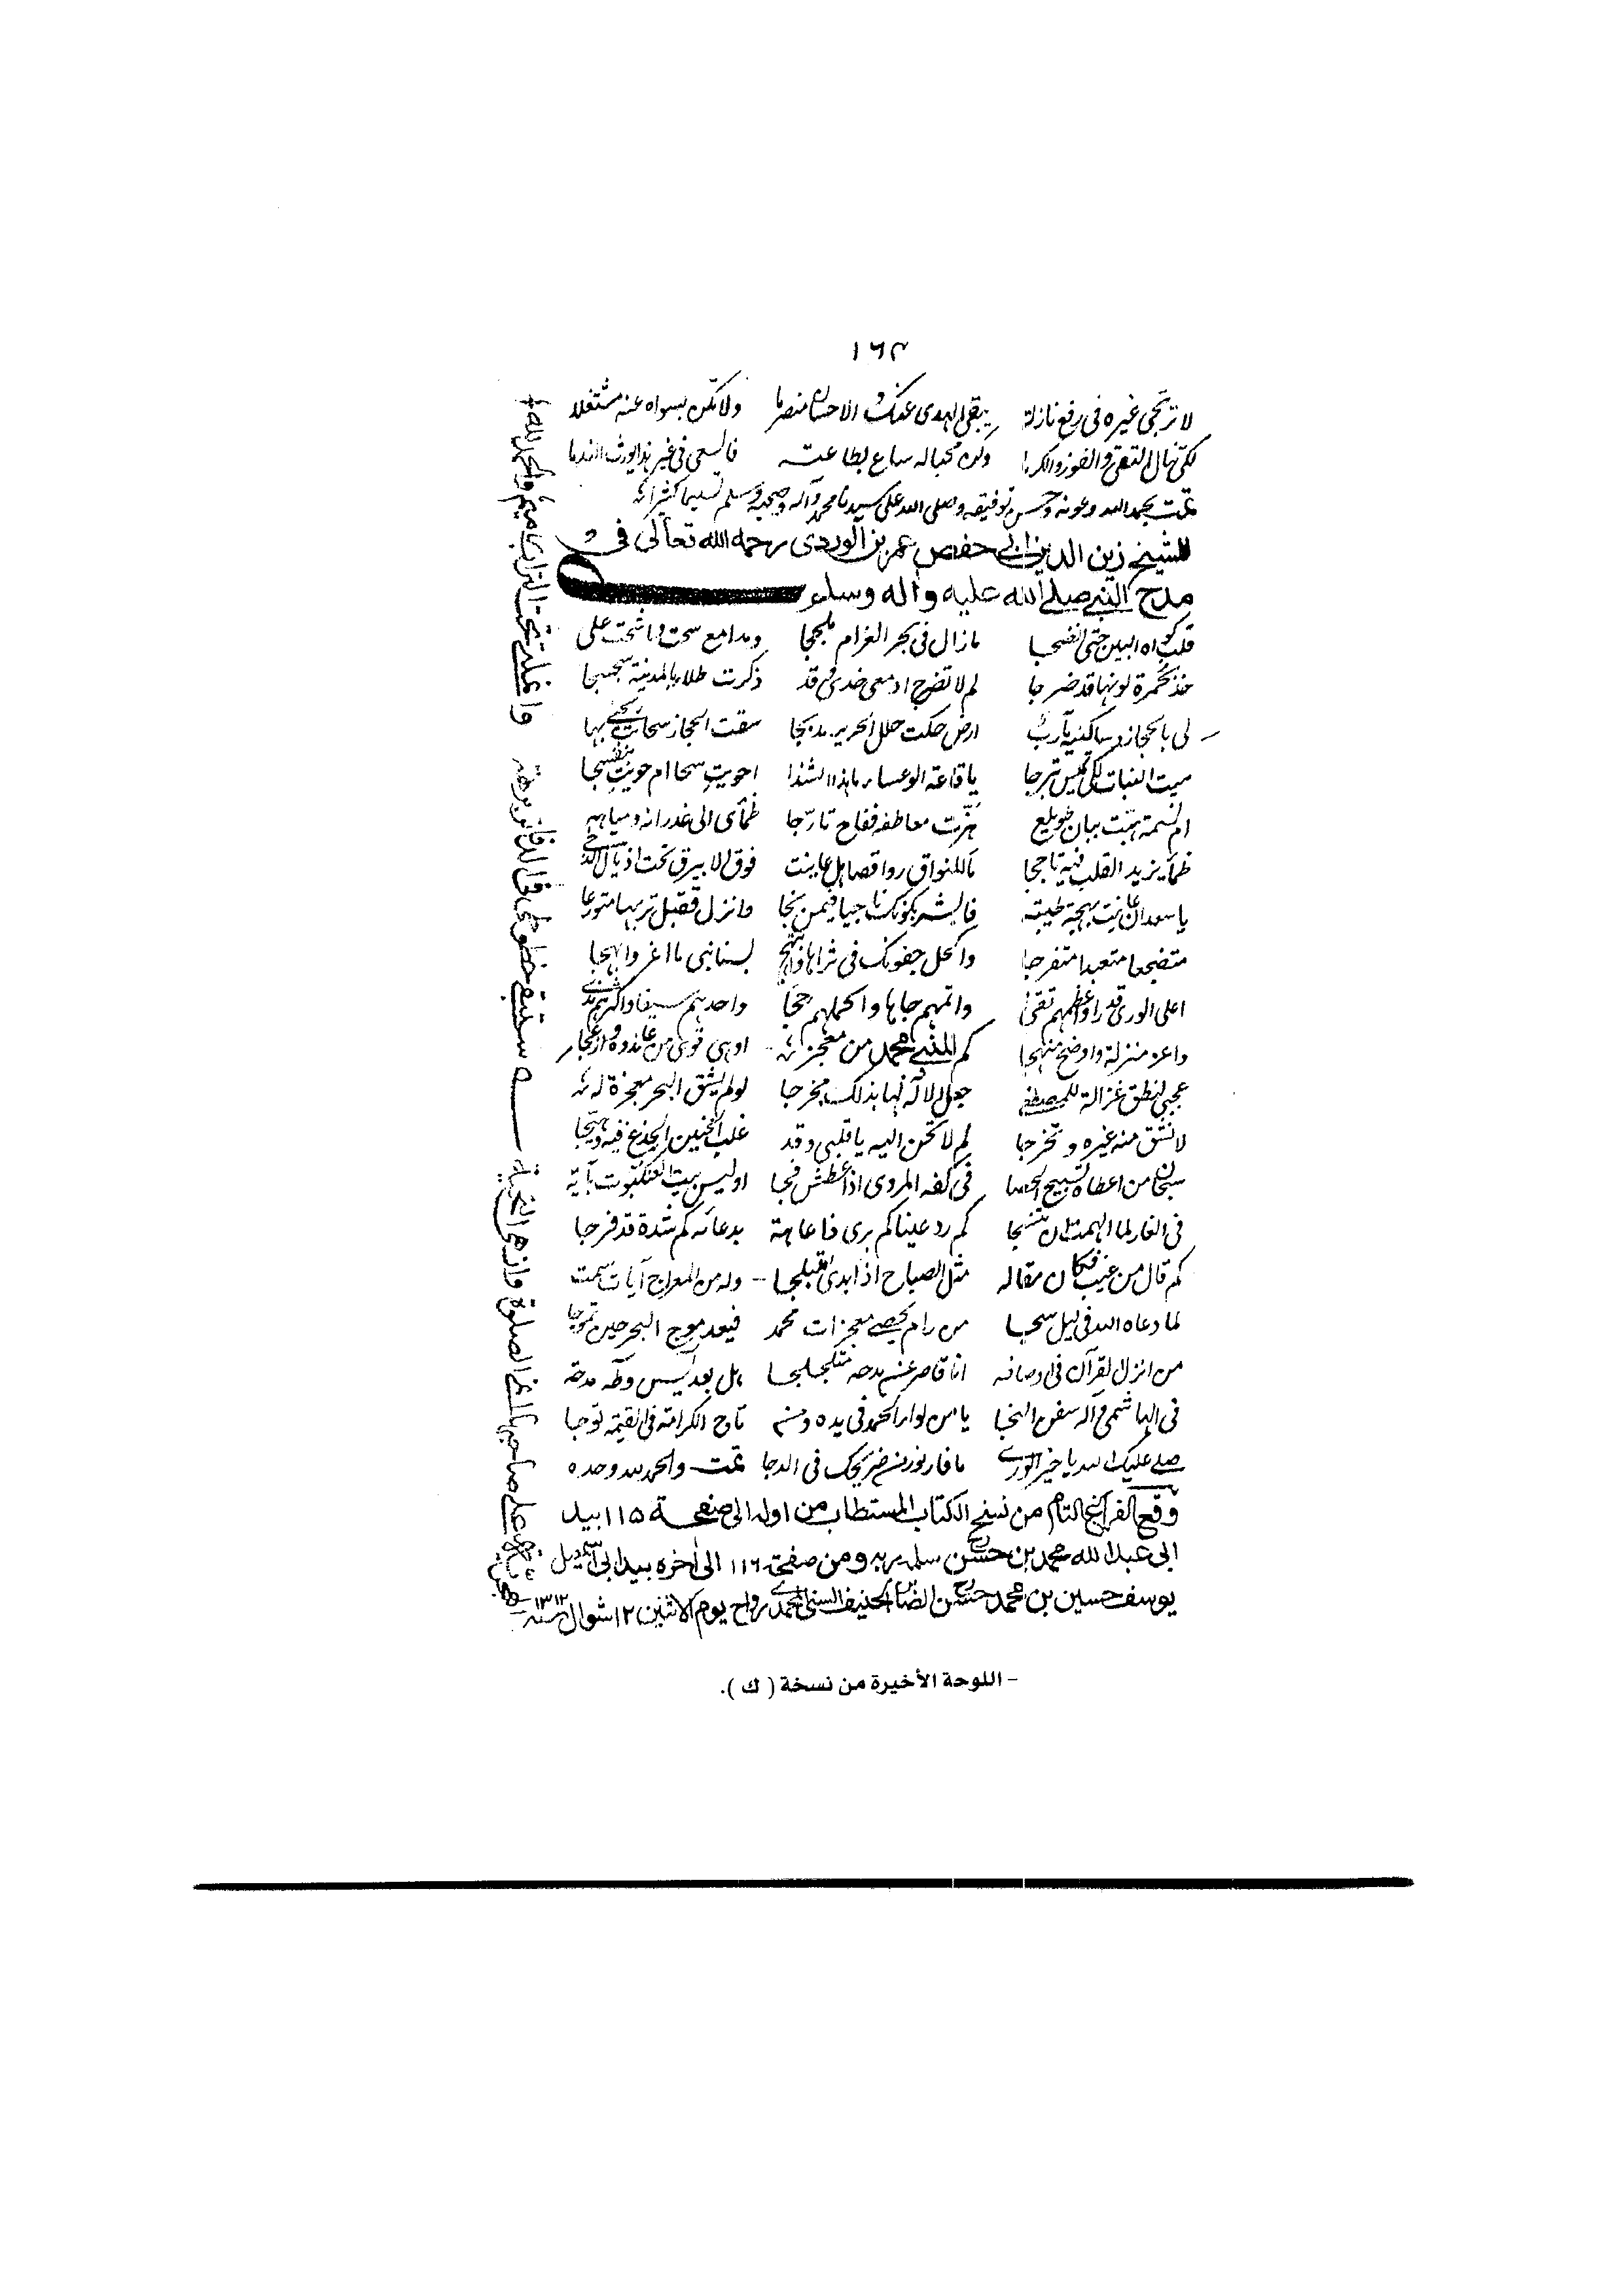 ١٦٣
لا ترتجي غيره في رفع نازلة يبقى الهدى عنك والاحسان منصرما ولا تكن بسواه عنه مشتغلا
لكي تنال التقى والفوز والكرما وكن محبا له ساع لطاعته فالسعي في غير هذا يورث الندما
تمت بحمد الله وعونه وحسن توفيقه وصلى الله على سيدنا محمد وآله وصحبه وسلم تسليما كثيرا
للشيخ زين الدين ابي حفص عمر بن الوردي رحمه الله تعالى في
مدح النبي صلى الله عليه وآله وسلم
قلب كواه البين حتى انضجا ما زال في بحر الغرام ملججا ومدامع سحت وما شحت على
خد بحمرة لونها قد ضرجا لم لا تضرج ادمعي خدي وقد ذكرت طلابا بالمدينة سجسجا
لي بالحجاز وساكنيه مآرب ارض حكت حلل الحرير مدبجا سقت الحجاز سحائب يحيى بها
ميت النبات لكي يميس تبرجا يا قاعة الوعساء ما هذا الشذا احويت سحا ام حويت بنفسجا
ام نسمة هبت ببان طويلع هزت معاطفه ففاح تارجا ظمأي الى غدرانه ومياهه
ظمأ يزيد القلب فيه تاججا ما للنواق رواقصا هل عاينت فوق الابيرق تحت اذيال الدجى
يا سعد ان عاينت بهجة طيبة فابشر بكونك ناجيا فيمن نجا وانزل فقبل تربها متورعا
متضجعا متعبدا متفرجا واكحل جفونك في ثراها وابتهج بسنا نبي ما اغر وابهجا
اعلى الورى قدرا واعظمهم تقى واتمهم جاها واكملهم حجا واحدهم سيفا واكرمهم ندى
واعز منزلة واوضح منهجا كم للنبي محمد من معجزاته اوهى قوى من عانده وازعجا
عجبي لنطق غزالة للمصطفى جعل الاله لها بذلك مخرجا لو لم يشق البحر معجزة له
لانشق منه غيره وتخرجا لم لا تحن اليه يا قلبي وقد غلب الحنين الجذع فيه وهيجا
سبحان من اعطاه تسبيح الحصا في كفه المروي اذا عطش فجا اوليس بيت العنكبوت بآية
في الغار لما الهمت ان تنسجا كم رد عينا كم برى ذا عاهة بدعائه كم شدة قد فرجا
كم قال من غيب فكان مقاله مثل الصباح اذا بدى متبلجا وله من المعراج آيات سمت
لما دعاه الله في ليل سجا من رام يحصي معجزات محمد فيعد موج البحر حين تموجا
من انزل القرآن في اوصافه انا قاصر عن مدحه متلجلجا هل بعد يس وطه مدحة
في الهاشمي وآله سفن النجا يا من لواء الحمد في يده ومن تاج الكرامة في القيمة توجا
صلى عليك الله يا خير الورى ما فار نور من ضريحك في الدجا تمت والحمد لله وحده
وقع الفراغ التام من نسخ الكتاب المستطاب من اوله الى صفحة ١١٥ بيد
ابي عبد الله محمد بن حسن سلمه ربه ومن صفحة ١١٦ الى آخره بيد ابي اسمعيل
يوسف حسين بن محمد حسن الحنيف السني المحمدي رواح يوم الاثنين ١٢ شوال سنة ١٣١٢
- اللوحة الأخيرة من نسخة ( ك ).